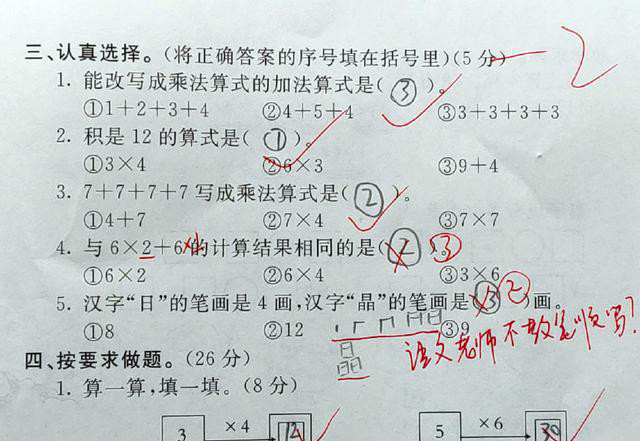 三、认真选择。(将正确答案的序号填在括号里)(5分) 2
1. 能改写成乘法算式的加法算式是( ③ )。
①1+2+3+4 ②4+5+4 ③3+3+3+3
2. 积是12的算式是( ① )。
①3×4 ②6×3 ③9+4
3. 7+7+7+7写成乘法算式是( ② )。
①4+7 ②7×4 ③7×7
4. 与6×2+6×1的计算结果相同的是( ② )。③
①6×2 ②6×4 ③3×6
5. 汉字“日”的笔画是4画,汉字“晶”的笔画是 ③ ② 画。
①8 ②12 ③9
语文老师不教笔顺吗?
四、按要求做题。(26分)
1. 算一算,填一填。(8分)
3 ×4 12 5 ×6 30